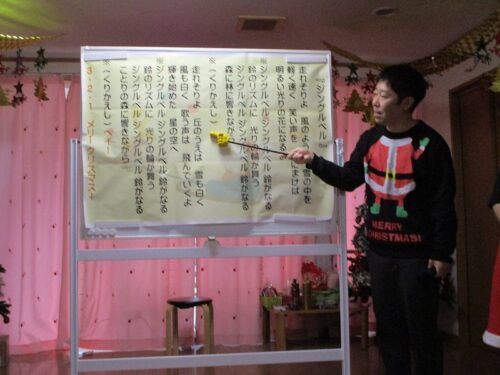 『ジングルベル』
走れそりよ 風のように 雪の中を
軽く速く 笑い声を 雪にまけば
明るい光りの 花になるよ
※ジングルベル ジングルベル 鈴がなる
鈴のリズムに 光りの輪が舞う
ジングルベル ジングルベル 鈴がなる
森に林に 響きながら
※(くりかえし)
走れそりよ 丘のうえは 雪も白く
風も白く 歌う声は 飛んでいくよ
輝き始めた 星の空へ
※ジングルベル ジングルベル 鈴がなる
鈴のリズムに 光りの輪が舞う
ジングルベル ジングルベル 鈴がなる
ことりの森に 響きながら
※(くりかえし)ヘイ!
3・2・1 メリークリスマス!
MERRY
CHRISTMAS!